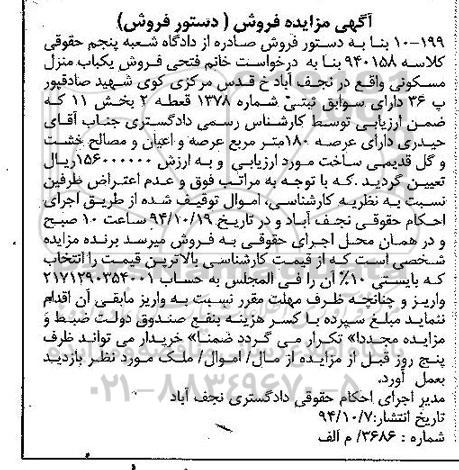 آگهی مزایده فروش ( دستور فروش)
۱۰-۱۹۹ بنا به دستور فروش صادره از دادگاه شعبه پنجم حقوقی
کلاسه ۹۴۰۱۵۸ بنا به درخواست خانم فتحی فروش یکباب منزل
مسکونی واقع در نجف آباد خ قدس مرکزی کوی شهید صادقپور
پ ۳۶ دارای سوابق ثبتی شماره ۱۳۷۸ قطعه ۲ بخش ۱۱ که
ضمن ارزیابی توسط کارشناس رسمی دادگستری جناب آقای
حیدری دارای عرصه ۱۸۰متر مربع عرصه و اعیان و مصالح خشت
و گل قدیمی ساخت مورد ارزیابی و به ارزش ۱۵۶۰۰۰۰۰۰۰ریال
تعیین گردید .که با توجه به مراتب فوق و عدم اعتراض طرفین
نسبت به نظریه کارشناسی، اموال توقیف شده از طریق اجرای
احکام حقوقی نجف آباد و در تاریخ ۹۴/۱۰/۱۹ ساعت ۱۰ صبح
و در همان محل اجرای حقوقی به فروش میرسد برنده مزایده
شخصی است که از قیمت کارشناسی بالاترین قیمت را انتخاب
که بایستی ۱۰٪ آن را فی المجلس به حساب ۲۱۷۱۲۹۰۳۵۴۰۰۱
واریز و چنانچه ظرف مهلت مقرر نسبت به واریز مابقی آن اقدام
ننماید مبلغ سپرده با کسر هزینه بنفع صندوق دولت ضبط و
مزایده مجددا» تکرار می گردد ضمنا» خریدار می تواند ظرف
پنج روز قبل از مزایده از مال/ اموال/ ملک مورد نظر بازدید
بعمل آورد.
مدیر اجرای احکام حقوقی دادگستری نجف آباد
تاریخ انتشار:۹۴/۱۰/۷
شماره : ۳۶۸۶/ م الف
۰۲۱-۸۸۳۴۹۶۷۰-۵